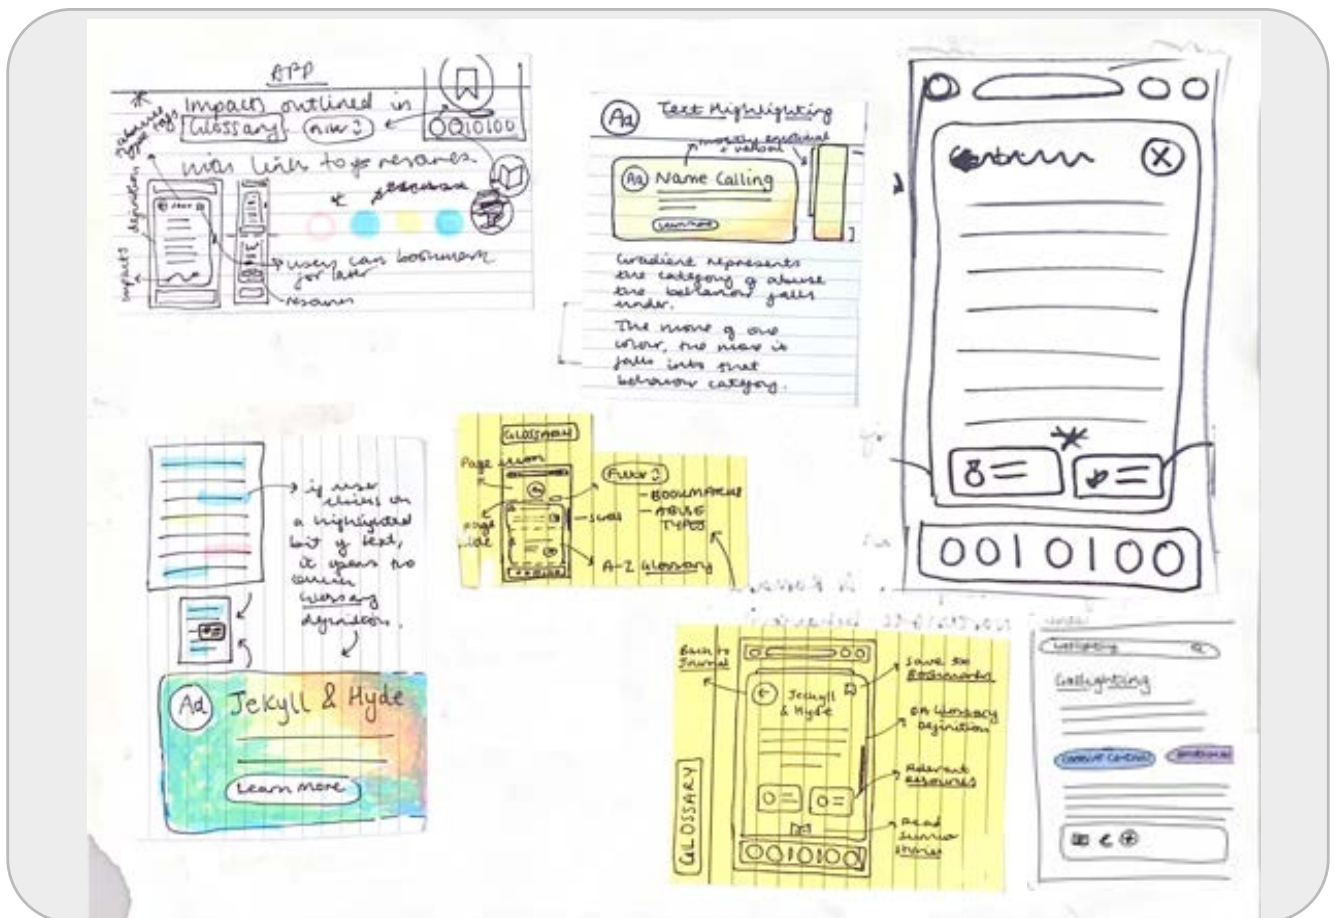 APP
Impacts outlined in
Glossary
with links to resources.
definition
impacts
users can bookmark
for later
resources
Aa
Text Highlighting
mostly emotional
+ verbal
Aa Name Calling
Learn more
Gradient represents
the category of abuse
the behavior falls
under.
The more of one
colour, the more it
falls into that
behaviour category.
if user
clicks on
a highlighted
bit of text,
it opens
Glossary
definition.
Aa Jekyll & Hyde
Learn more
GLOSSARY
Page icon
Aa
Filter
- BOOKMARKS
- ABUSE
TYPES
scroll
A-Z Glossary
Back to
Journal
Jekyll
& Hyde
Save to
Bookmarks
Glossary
Definition
Relevant
Resources
Read
stories
GLOSSARY
Gaslighting
Gaslighting
Coercive Control